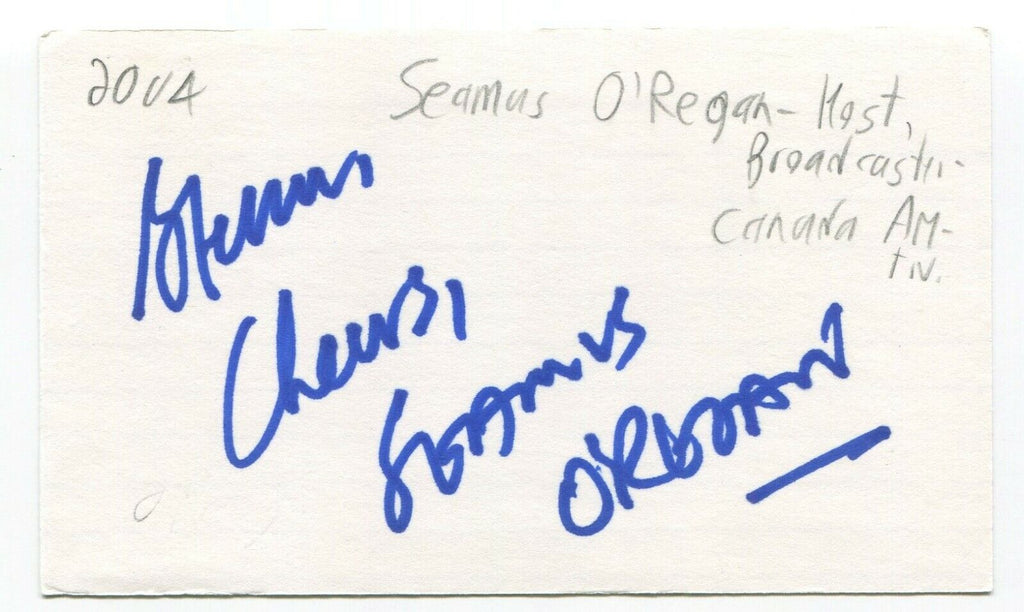 2004 Seamus O'Regan- Host,
Broadcaster-
Canada AM-
tv.
Cheers,
SEAMUS
O'REGAN